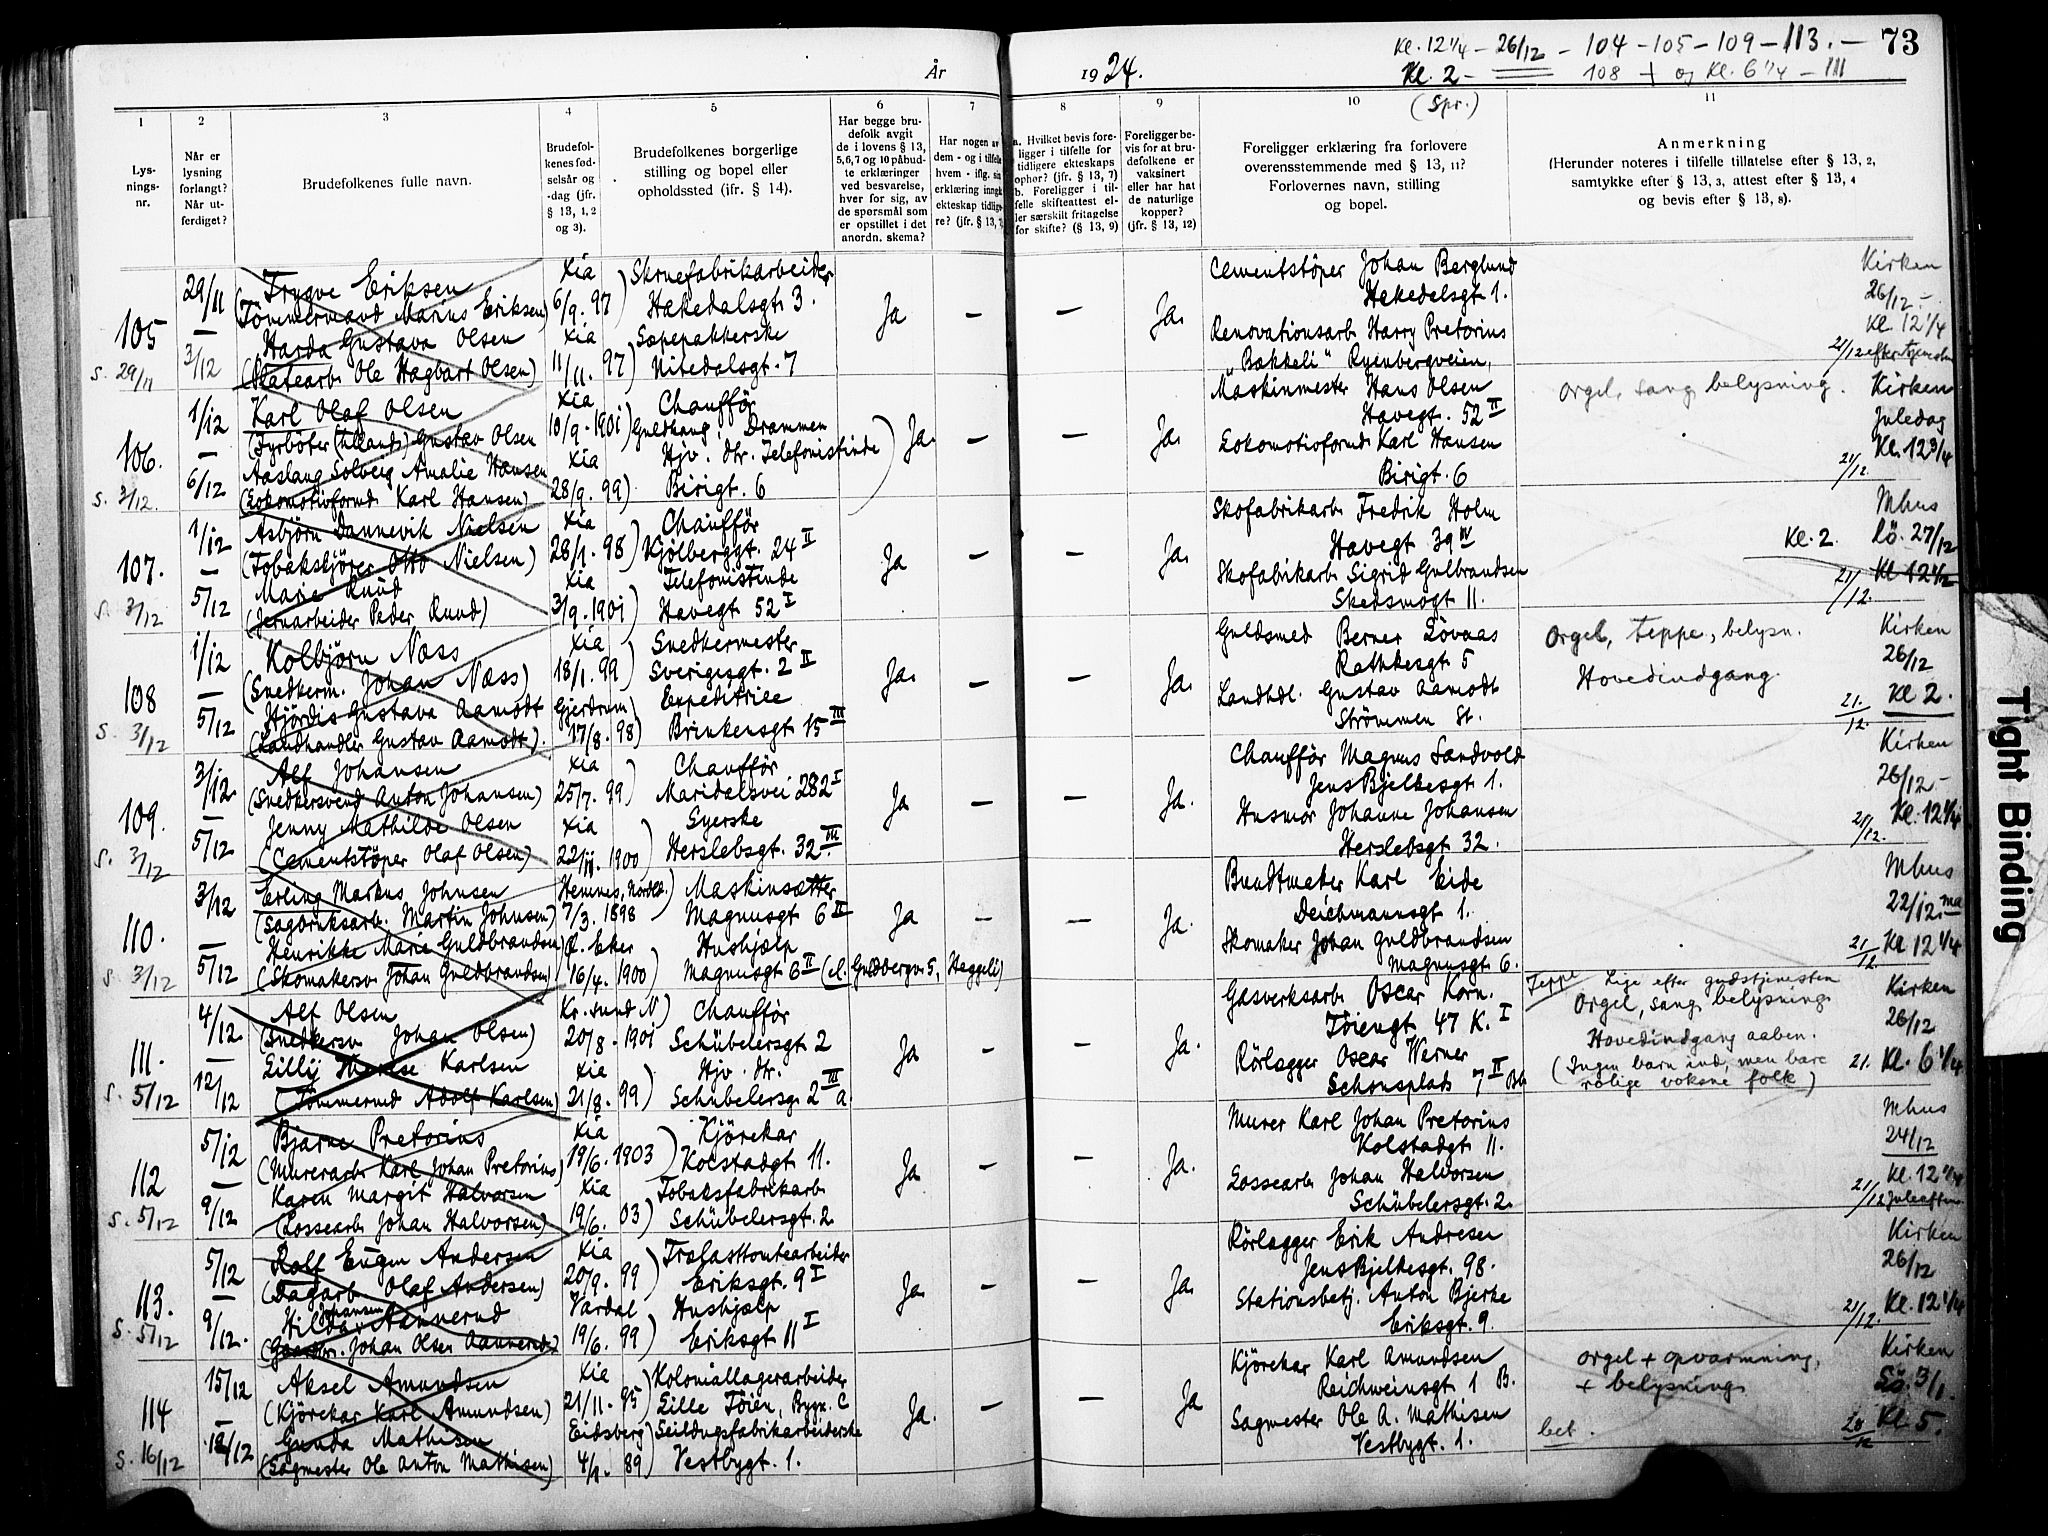 Kl. 12 1/4 - 26/12 - 104 - 105 - 109 - 113. - 73
År 1924. Kl. 2 - 108 + og Kl. 6 1/4 - 111
(Spr.)
1 2 3 4 5 6 7 8 9 10 11
Lys-
nings-
nr.
Når er
lysning
forlangt?
Når ut-
ferdiget?
Brudefolkenes fulle navn.
Brudefol-
kenes fød-
selsår og
-dag (jfr.
§ 13, 1, 2
og 3).
Brudefolkenes borgerlige
stilling og bopel eller
opholdssted (jfr. § 14).
Har begge bru-
defolk avgit
de i lovens § 13,
5,6,7 og 10 påbud-
te erklæringer
ved besvarelse,
hver for sig, av
de spørsmål som
er opstillet i det
anordn. skema?
Har nogen av
dem - og i tilfelle
hvem - iflg. sin
erklæring inngå
ekteskap tidlig
re? (jfr. § 13,
a. Hvilket bevis fore-
ligger i tilfelle for
tidligere ekteskaps
ophør? (jfr. § 13, 7)
b. Foreligger i til-
felle skifteattest el-
ler særskilt fritagelse
for skifte? (§ 13, 9)
Foreligger be-
vis for at bru-
defolkene er
vaksinert
eller har hat
de naturlige
kopper?
(jfr. § 13, 12)
Foreligger erklæring fra forlovere
overensstemmende med § 13, 11?
Forlovernes navn, stilling
og bopel.
Anmerkning
(Herunder noteres i tilfelle tillatelse efter § 13, 2,
samtykke efter § 13, 3, attest efter § 13, 4
og bevis efter § 13, 8).
105 29/11 Trygve Eriksen Xia Skruefabrikarbeider Cementstöper Johan Berglund Kirken
(Tömmermand Marius Eriksen) 6/9. 97) Hakedalsgt. 3. Ja - - Ja. Hakedalsgt 1. 26/12 -
Harda Gustava Olsen Xia Sæpepakkerske Renovationsarb. Harry Pretorius Kl. 12 1/4
s. 29/11 3/12 Ole Hagbart Olsen) 11/11. 97) Nitedalsgt. 7 "Bakkeli" Ryenbergveien, 21/12
106. 1/12 Karl Olaf Olsen Xia Chaufför Maskinmester Hans Olsen Orgel, sang, belysning. Kirken
(Fyrböter Gustav Olsen 10/9 - 1901) Drammen Ja. - - Ja. Havegt. 52 II Juledag
Aaslaug Solveig Amalie Hansen Xia Hjv. dtr. Telefonistinde) Lokomotivformd. Karl Hansen Kl. 12 3/4
s. 3/12. 6/12 (Lokomotivformd. Karl Hansen) 28/9. 99) Birigt. 6 Birigt. 6 21/12.
107. 1/12 Asbjörn Dannevik Nielsen Xia Chaufför Skofabrikarb. Fredrik Holm Mhus
(Tobakskjörer Otto Nielsen) 28/1. 98) Kjölberggt. 24 II Ja - - Ja. Havegt 39 IV Kl. 2. Lö. 27/12
Marie Ruud Xia Telefonistinde Skofabrikarb. Sigrid Gulbrandsen Kl 12 1/2
s. 3/12 5/12 (Jernarbeider Peder Ruud) 3/9. 1901) Havegt 52 I Skedsmogt 11. 21/12.
108 1/12 Kolbjörn Næss Xia Snedkermester Guldsmed Berner Lövaas Orgel, teppe, belysn. Kirken
(Snedkerm. Johan Næss) 18/1. 99) Sverigesgt. 2 II Ja. - - Ja. Rathkesgt. 5 Hovedindgang. 26/12
Hjördis Gustava Aamodt Gjerdrum Expeditrice Landhdl. Gustav Aamodt Kl 2.
s. 3/12 5/12 (Landhandler Gustav Aamodt) 17/8. 98) Brinkensgt 15 III Strömmen St. 21./12
109. 3/12 Alf Johansen Xia Chaufför Chaufför Magnus Sandvold Kirken
(Snedkersvend Anton Johansen) 25/7. 99) Maridalsvei 282 I Ja - - Ja. Jens Bjelkesgt 1. 26/12 -
Jenny Mathilde Olsen Xia Syerske Husmor Johanne Johansen Kl. 12 1/4
s. 3/12 5/12 (Cementstöper Olaf Olsen) 22/11. 1900) Herslebsgt. 32 III Herslebsgt 32. 21/12.
110. 3/12 Erling Markus Johnsen Hemnes, Nordld.) Maskinsætter Bundtmaker Karl Eide Mhus
(Sagbruksarb. Martin Johnsen) 7/3. 1898 Magnusgt 6 II Ja - - Ja. Deichmannsgt 1. 22/12. ma
Henrikke Marie Guldbrandsen) Ø. Eker Hushjælp Skomaker Johan Guldbrandsen Kl 12 1/4
s. 3/12 5/12 (Skomakersv. Johan Guldbrandsen) 16/4. 1900) Magnusgt 6 II (el. Guldbergv. 5, Heggeli) Magnusgt 6. 21/12
111. 4/12 Alf Olsen Kr.sund N) Chaufför Gasverksarb. Oscar Korn. Teppe Lige efter gudstjenesten Kirken
(Snedkersv. Johan Olsen) 20/8. 1901 Schübelersgt 2 Ja - - Ja. Töiengt 47 K. I Orgel, sang, belysning. 26/12
Lilly Therese Karlsen Xia Hjv. dtr. Rörlægger Oscar Werner Hovedindgang aaben. 21. Kl. 6 1/4
s. 5/12 12/12 (Tömmermd Adolf Karlsen) 21/8. 99) Schübelersg. 2 III a Schousplads 7 II (Ingen barn ind, men bare
rolige voksne folk)
112 5/12 Bjarne Pretorius Xia Kjörekar Murer Karl Johan Pretorius Mhus
(Murerarb. Karl Johan Pretorius) 19/6. 1903) Kolstadgt 11. Ja - - Ja. Kolstadgt 11. 24/12
Karen Margit Halvorsen Xia Tobaksfabrikarb Lossearb Johan Halvorsen Kl. 12 1/4
s. 5/12 9/12 (Lossearb Johan Halvorsen) 19/6. 03) Schübelersgt. 2 Schübelersgt. 2. 21/12 Juleaften
113. 5/12 Rolf Eugen Andersen Xia Trælasttomtearbeider Rörlægger Erik Andresen Kirken
(Dagarb Olaf Andersen) 20/9. 99) Eriksgt. 9 I Ja. - - Ja. Jens Bjelkesgt. 98. 26/12
Johansen
Hilda Aannerud Vardal Hushjælp Stationsbetj. Anton Bjerke Kl. 12 1/4
s. 5/12 9/12. Johan Olsen Aannerud) 19/6. 99) Eriksgt 11 I Eriksgt. 9. 21/12.
114 15/12 Aksel Amundsen Xia Koloniallagerarbeider Kjörekar Karl Amundsen Orgel + opvarmning, Kirken
(Kjörekar Karl Amundsen) 21/11. 95) Lille Töien, Bygn. C Ja. - - Ja Reichweinsgt 1 B. + belysning Lö. 3/1.
Gunda Mathisen Eidsberg) Seildugsfabrikarbeiderske Sagmester Ole A. Mathisen Kl. 5.
s. 16/12 18/12 (Sagmester Ole Anton Mathisen) 4/9. 89) Vestbygt. 1. Vestbygt. 1. bet. 20/12
Tight Binding